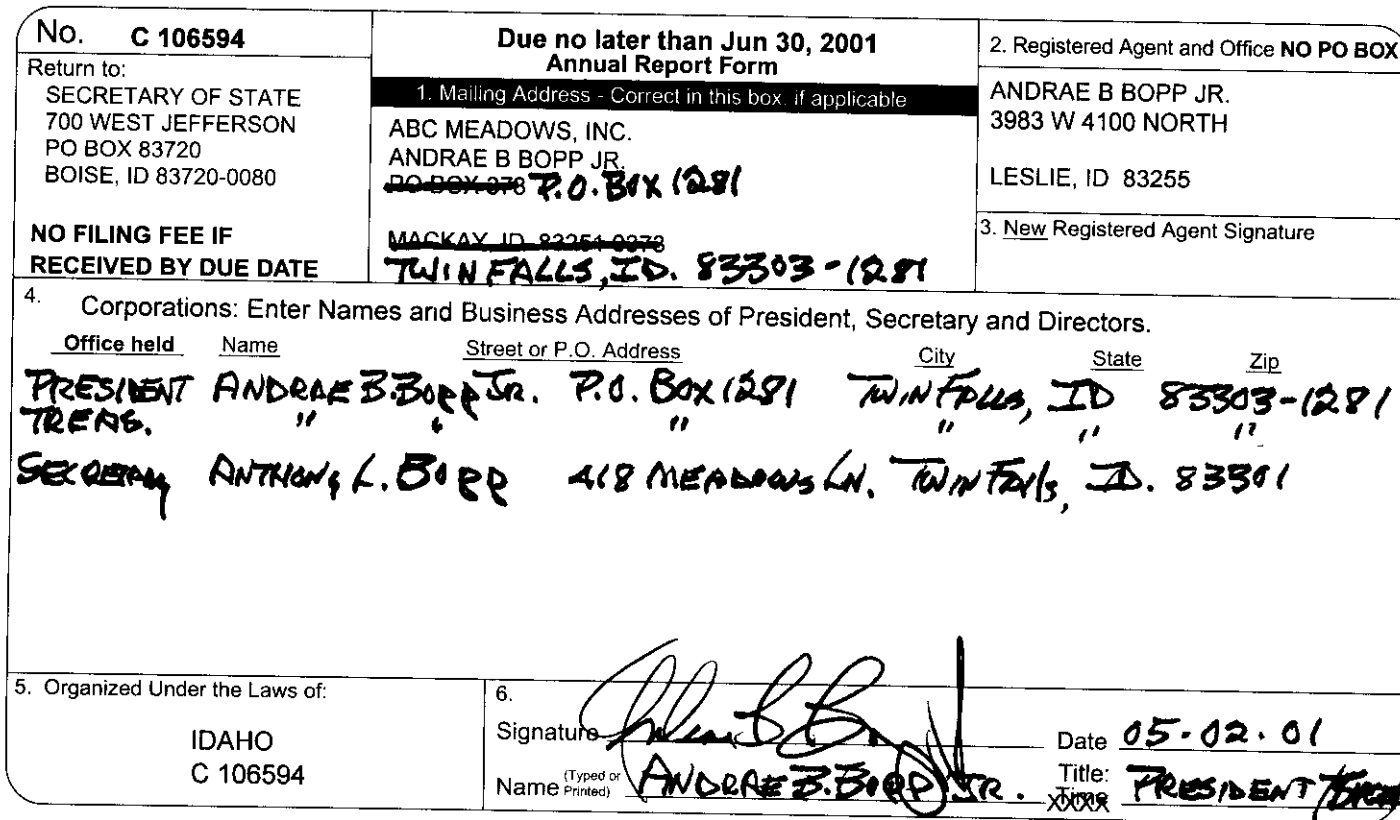 No. C 106594
Return to:
SECRETARY OF STATE
700 WEST JEFFERSON
PO BOX 83720
BOISE, ID 83720-0080
NO FILING FEE IF
RECEIVED BY DUE DATE
Due no later than Jun 30, 2001
Annual Report Form
1. Mailing Address - Correct in this box, if applicable
ABC MEADOWS, INC.
ANDRAE B BOPP JR.
PO BOX 378 P.O. BOX 1281
MACKAY, ID 83251-0378
TWIN FALLS, ID. 83303-1281
2. Registered Agent and Office NO PO BOX
ANDRAE B BOPP JR.
3983 W 4100 NORTH
LESLIE, ID 83255
3. New Registered Agent Signature
4. Corporations: Enter Names and Business Addresses of President, Secretary and Directors.
Office held Name Street or P.O. Address City State Zip
PRESIDENT ANDRAE B. BOPP JR. P.O. BOX 1281 TWIN FALLS, ID 83303-1281
TREAS. " " " " " "
SECRETARY ANTHONY L. BOPP 418 MEADOWS LN. TWIN FALLS, ID. 83301
5. Organized Under the Laws of:
IDAHO
C 106594
6.
Signature
Date 05-02-01
Name (Typed or Printed) ANDRAE B. BOPP JR.
Title: PRESIDENT